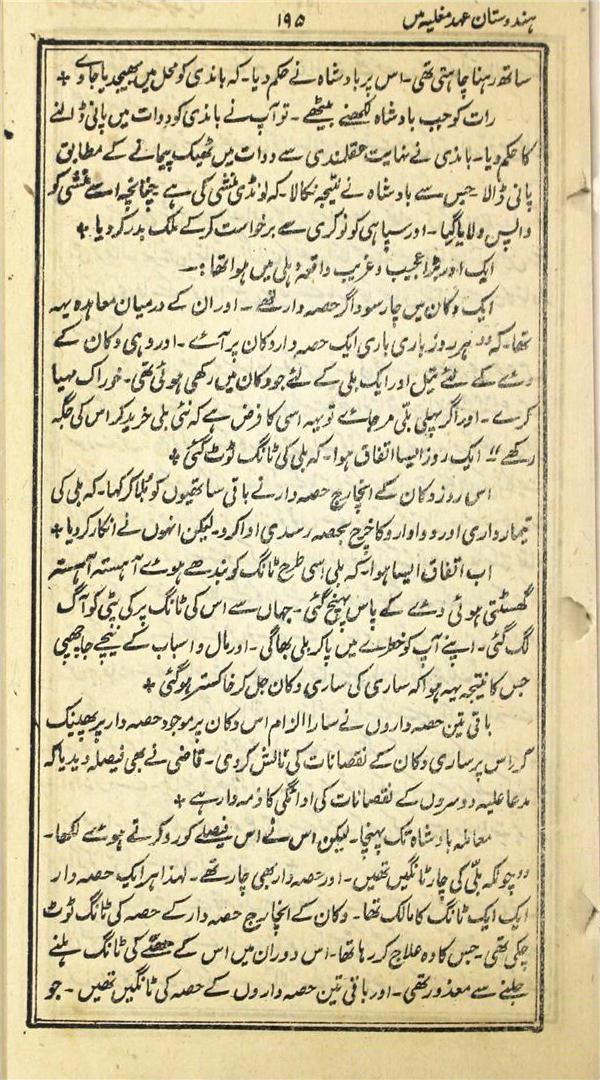 ہندوستان عہد مغلیہ میں
۱۹۵
ساتھ رہنا چاہتی تھی۔ اس پر بادشاہ نے حکم دیا۔ کہ باندی کو محل میں بھیجدیا جاوے +
رات کو جب بادشاہ لکھنے بیٹھے۔ تو آپ نے باندی کو دوات میں پانی ڈالنے
کا حکم دیا۔ باندی نے نہایت عقلمندی سے دوات میں ٹھیک پیمانے کے مطابق
پانی ڈالا۔ جس سے بادشاہ نے نتیجہ نکالا۔ کہ لونڈی منشی کی ہے چنانچہ اسے منشی کو
واپس دلایا گیا۔ اور سپاہی کو نوکری سے برخواست کر کے ملک بدر کر دیا +
ایک اور بڑا عجیب و غریب واقعہ دہلی میں ہوا تھا :۔
ایک دکان میں چار سوداگر حصہ دار تھے۔ اور ان کے درمیان معاہدہ یہہ
تھا۔ کہ "ہر روز باری باری ایک حصہ دار دکان پر آئے۔ اور وہی دکان کے
دئے کے لئے تیل اور ایک بلی کے لئے جو دکان میں رکھی ہوئی تھی۔ خوراک مہیا
کرے۔ اور اگر پہلی بلی مر جائے تو یہہ اسی کا فرض ہے کہ نئی بلی خرید کر اس کی جگہ
رکھے" ایک روز ایسا اتفاق ہوا۔ کہ بلی کی ٹانگ ٹوٹ گئی +
اس روز دکان کے انچارج حصہ دار نے باقی ساتھیوں کو بلا کر کہا۔ کہ بلی کی
تیمار داری اور دوا دارو کا خرچ بحصہ رسدی ادا کرو۔ لیکن انہوں نے انکار کر دیا +
اب اتفاق ایسا ہوا۔ کہ بلی اسی طرح ٹانگ کو بندھے ہوئے آہستہ آہستہ
گھسٹتی ہوئی دئے کے پاس پہنچ گئی۔ جہاں سے اس کی ٹانگ پر کی پٹی کو آگ
لگ گئی۔ اپنے آپ کو خطرے میں پا کر بلی بھاگی۔ اور مال و اسباب کے نیچے جا چھپی
جس کا نتیجہ یہہ ہوا کہ ساری کی ساری دکان جل کر خاکستر ہو گئی +
باقی تین حصہ داروں نے سارا الزام اس دکان پر موجود حصہ دار پر پھینک
کر اس پر ساری دکان کے نقصانات کی نالش کر دی۔ قاضی نے بھی فیصلہ دیدیا کہ
مدعا علیہ دوسروں کے نقصانات کی ادائگی کا ذمہ دار ہے +
معاملہ بادشاہ تک پہنچا۔ لیکن اس نے اس فیصلے کو رد کرتے ہوئے لکھا۔
"چونکہ بلی کی چار ٹانگیں تھیں۔ اور حصہ دار بھی چار تھے۔ لہذا ہر ایک حصہ دار
ایک ایک ٹانگ کا مالک تھا۔ دکان کے انچارج حصہ دار کے حصہ کی ٹانگ ٹوٹ
چکی تھی۔ جس کا وہ علاج کر رہا تھا۔ اس دوران میں اس کے حصے کی ٹانگ ہلنے
چلنے سے معذور تھی۔ اور باقی تین حصہ داروں کے حصہ کی ٹانگیں تھیں۔ جو